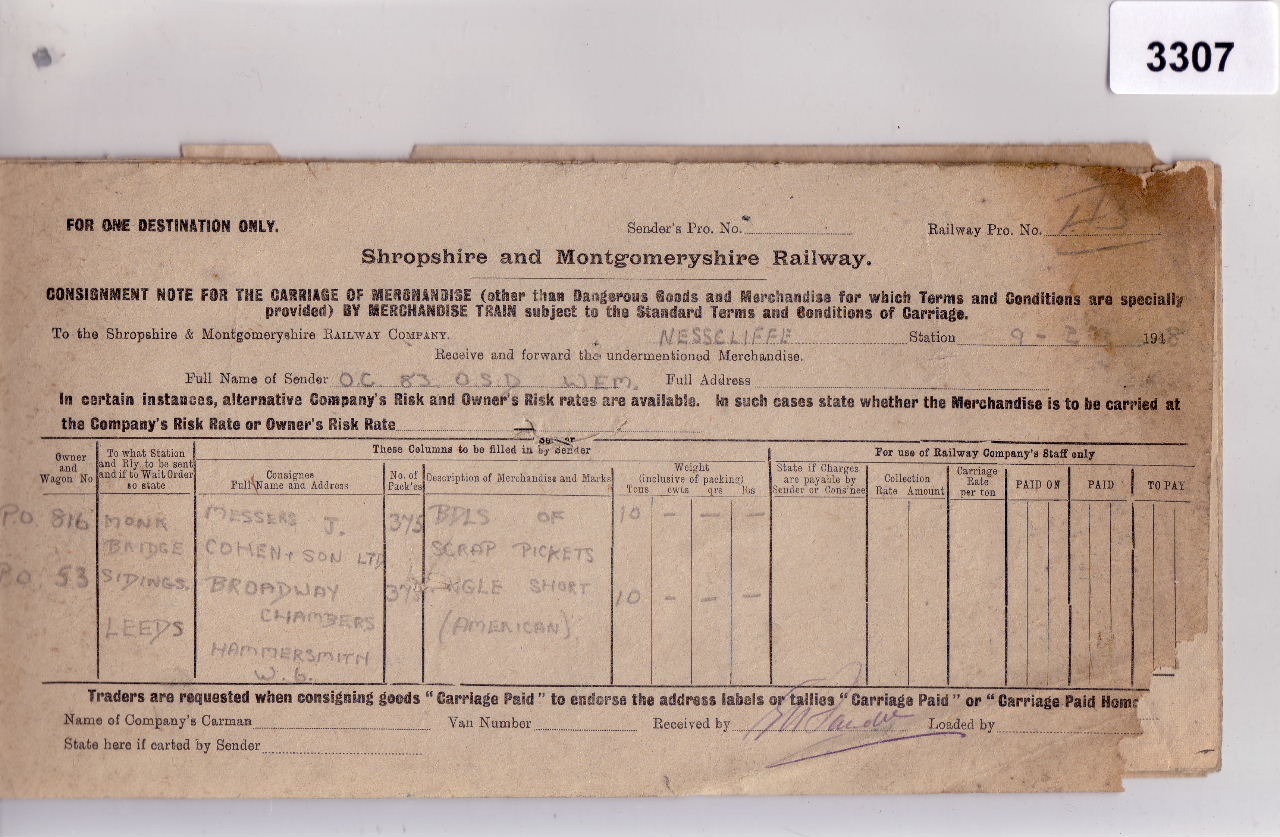 3307
FOR ONE DESTINATION ONLY. Sender's Pro. No. Railway Pro. No.
Shropshire and Montgomeryshire Railway.
CONSIGNMENT NOTE FOR THE CARRIAGE OF MERCHANDISE (other than Dangerous Goods and Merchandise for which Terms and Conditions are specially
provided) BY MERCHANDISE TRAIN subject to the Standard Terms and Conditions of Carriage.
To the Shropshire & Montgomeryshire RAILWAY COMPANY. NESSCLIFFE Station 9 - 1948
Receive and forward the undermentioned Merchandise.
Full Name of Sender O.C. 83. O.S.D WEM. Full Address
In certain instances, alternative Company's Risk and Owner's Risk rates are available. In such cases state whether the Merchandise is to be carried at
the Company's Risk Rate or Owner's Risk Rate
These Columns to be filled in by Sender For use of Railway Company's Staff only
Owner and Wagon No
To what Station and Rly. to be sent and if to Wait Order so state
Consignee Full Name and Address
No. of Pack'es
Description of Merchandise and Marks
Weight (inclusive of packing) Tons cwts qrs lbs
State if Charges are payable by Sender or Consnee
Collection Rate Amount
Carriage Rate per ton
PAID ON
PAID
TO PAY
P.O. 816 MONK MESSERS J. 375 BDLS OF 10 - - -
BRIDGE COHEN + SON LTD SCRAP PICKETS
P.O. 53 SIDINGS. BROADWAY 375 ANGLE SHORT 10 - - -
LEEDS CHAMBERS (AMERICAN)
HAMMERSMITH
W.6.
Traders are requested when consigning goods "Carriage Paid" to endorse the address labels or tallies "Carriage Paid" or "Carriage Paid Home
Name of Company's Carman Van Number Received by Loaded by
State here if carted by Sender